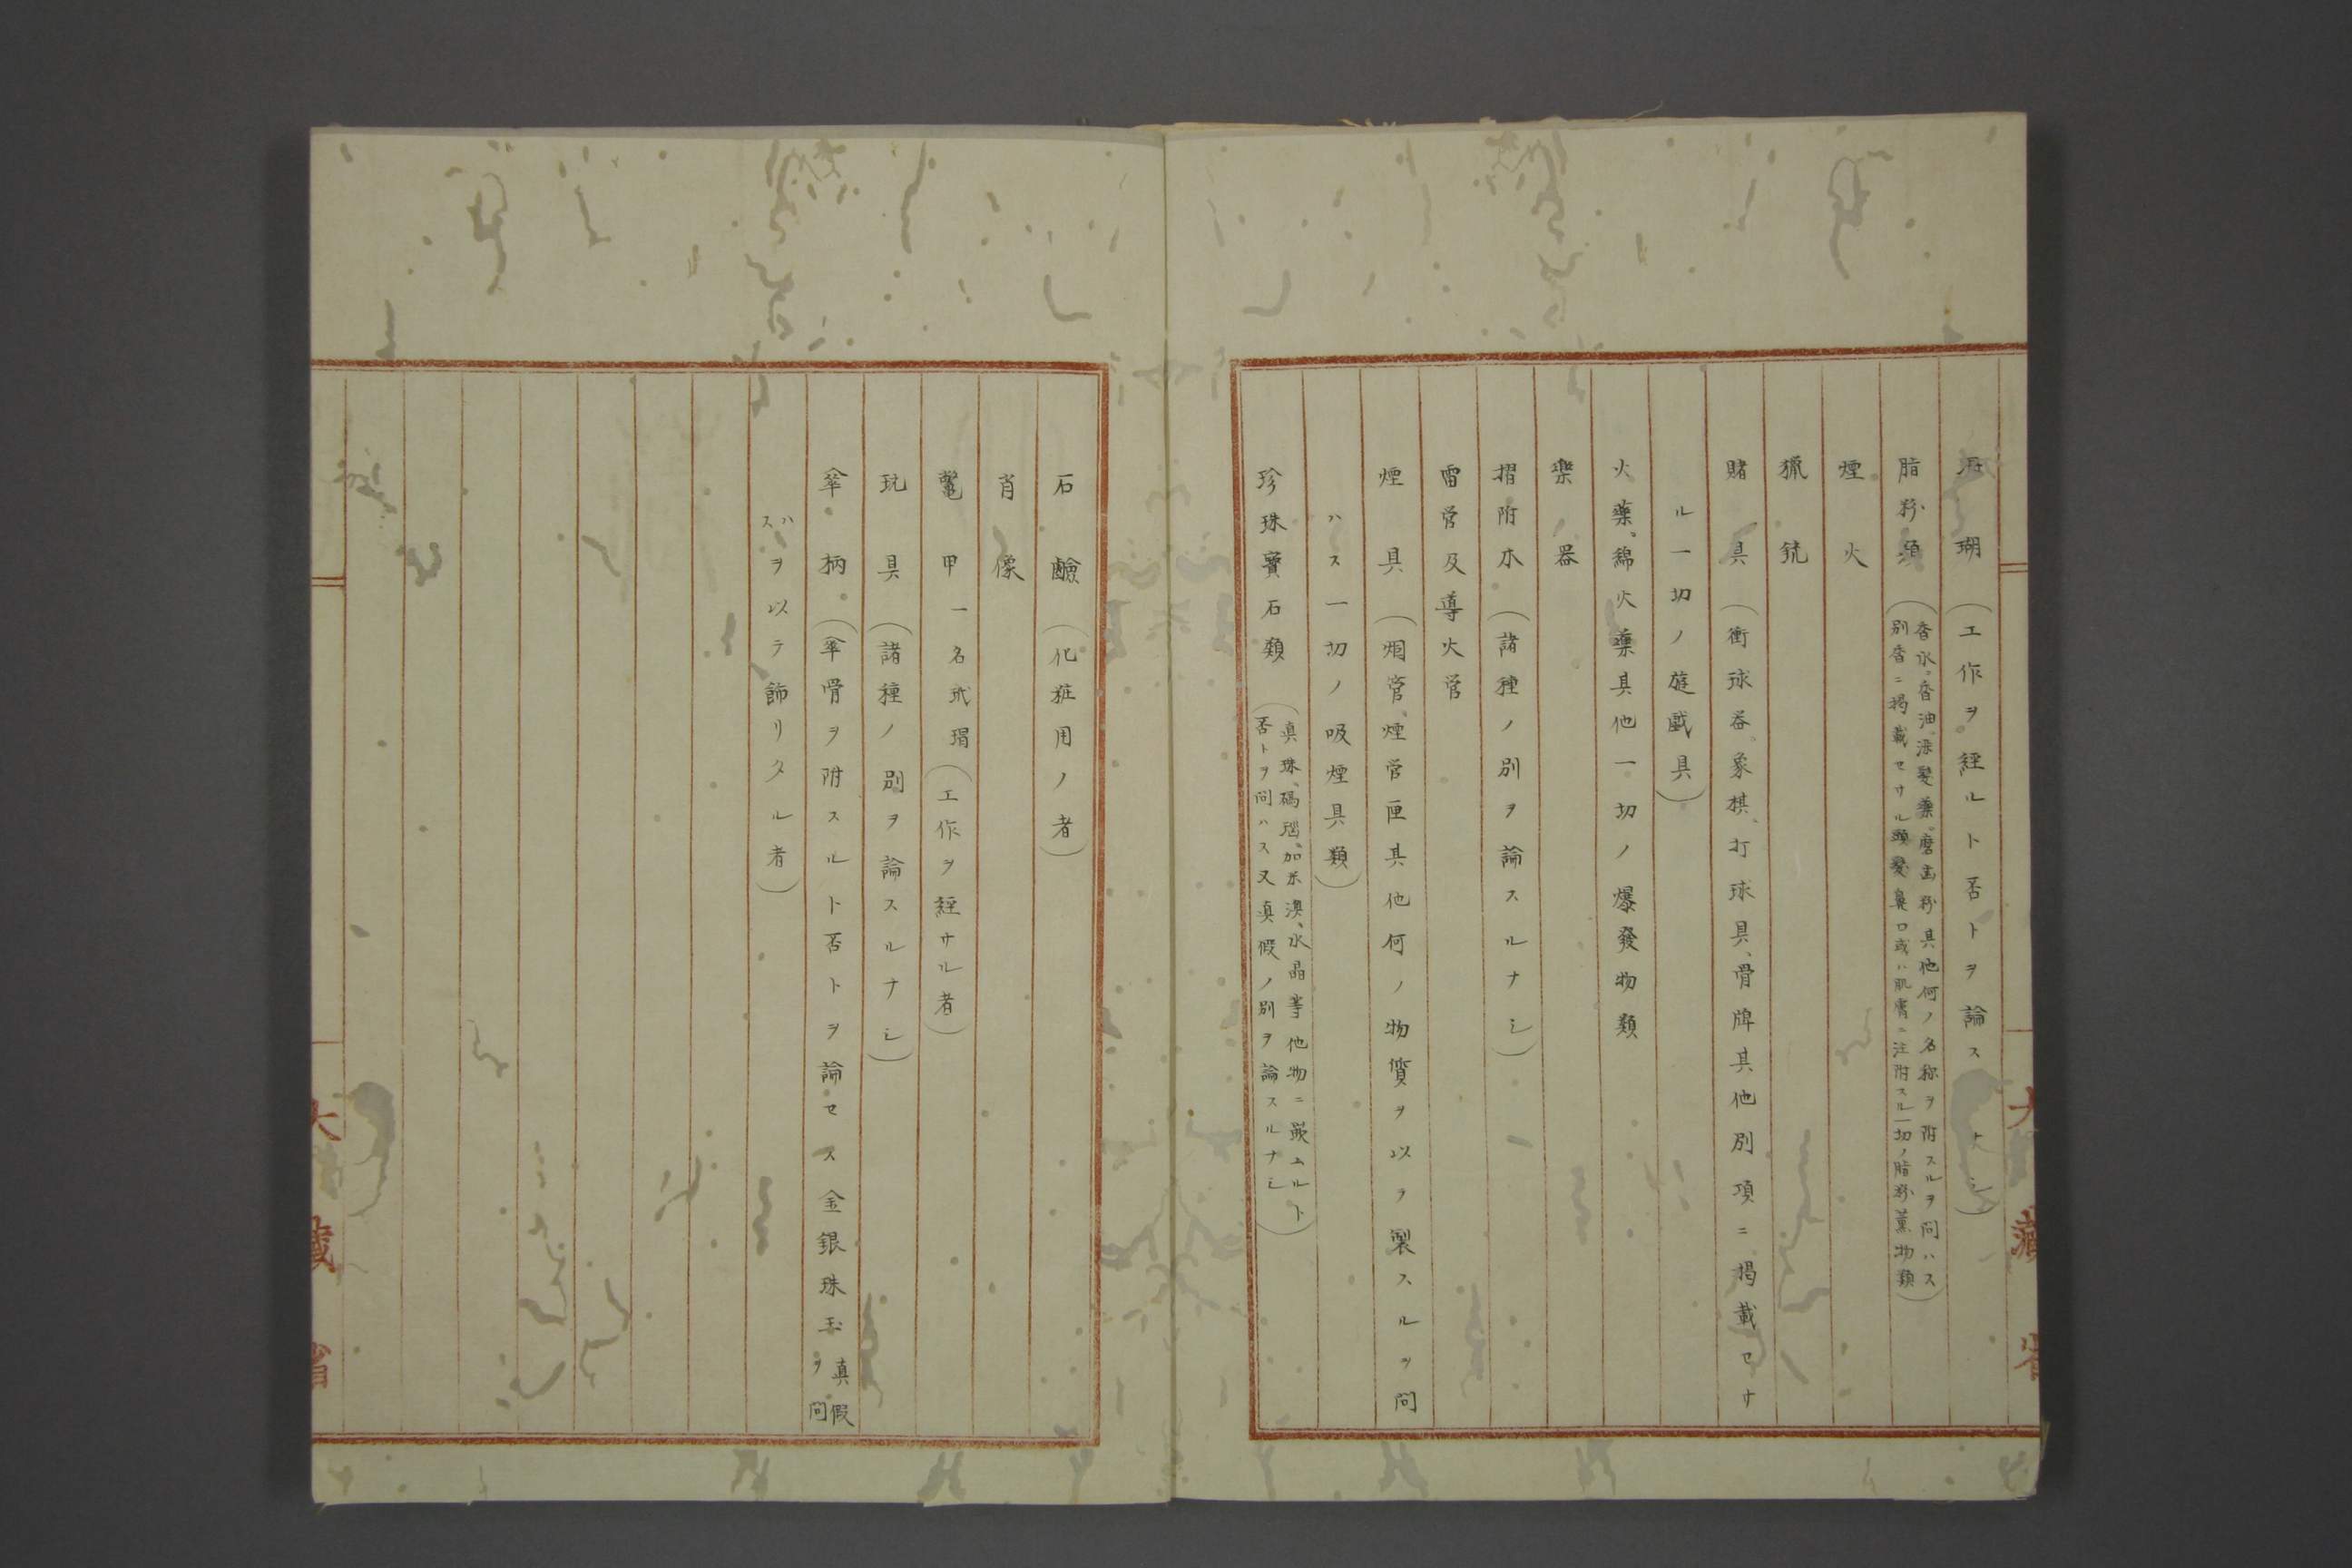 瑚(工作ヲ経ルト否トヲ論スナシ)
脂粉類(香水。香油。染髪薬。磨歯粉具他何ノ名称ヲ附スルヲ問ハス
別香ニ掲載セサル頭髪鼻口或ハ肌膚ニ注附スル一切ノ脂粉薫物類)
煙火
猟銃
賭具(衝球呑象棋、打球具、骨牌其他別項ニ掲載セサ
ル一切ノ遊戯具)
火藥、綿火藥其他一切ノ爆發物類
樂器
摺附木(諸種ノ別ヲ論スルナシ)
雷管及導火管
煙具(烟管、煙管匣其他何ノ物質ヲ以テ製スルヲ問
ハス一切ノ吸煙具類)
珍珠寶石類(真珠、碼瑙、加米澳、水晶等他物ニ嵌ムルト
否トヲ問ハス又真假ノ別ヲ論スルナシ)
大藏省
石鹼(化粧用ノ者)
肖像
鼈甲一名玳瑁(工作ヲ経サル者)
玩具(諸種ノ別ヲ論スルナシ)
傘柄(傘骨ヲ附スルト否トヲ論セス金銀珠玉真假
ヲ問
ハ
スヲ以テ飾リタル者)
大藏省